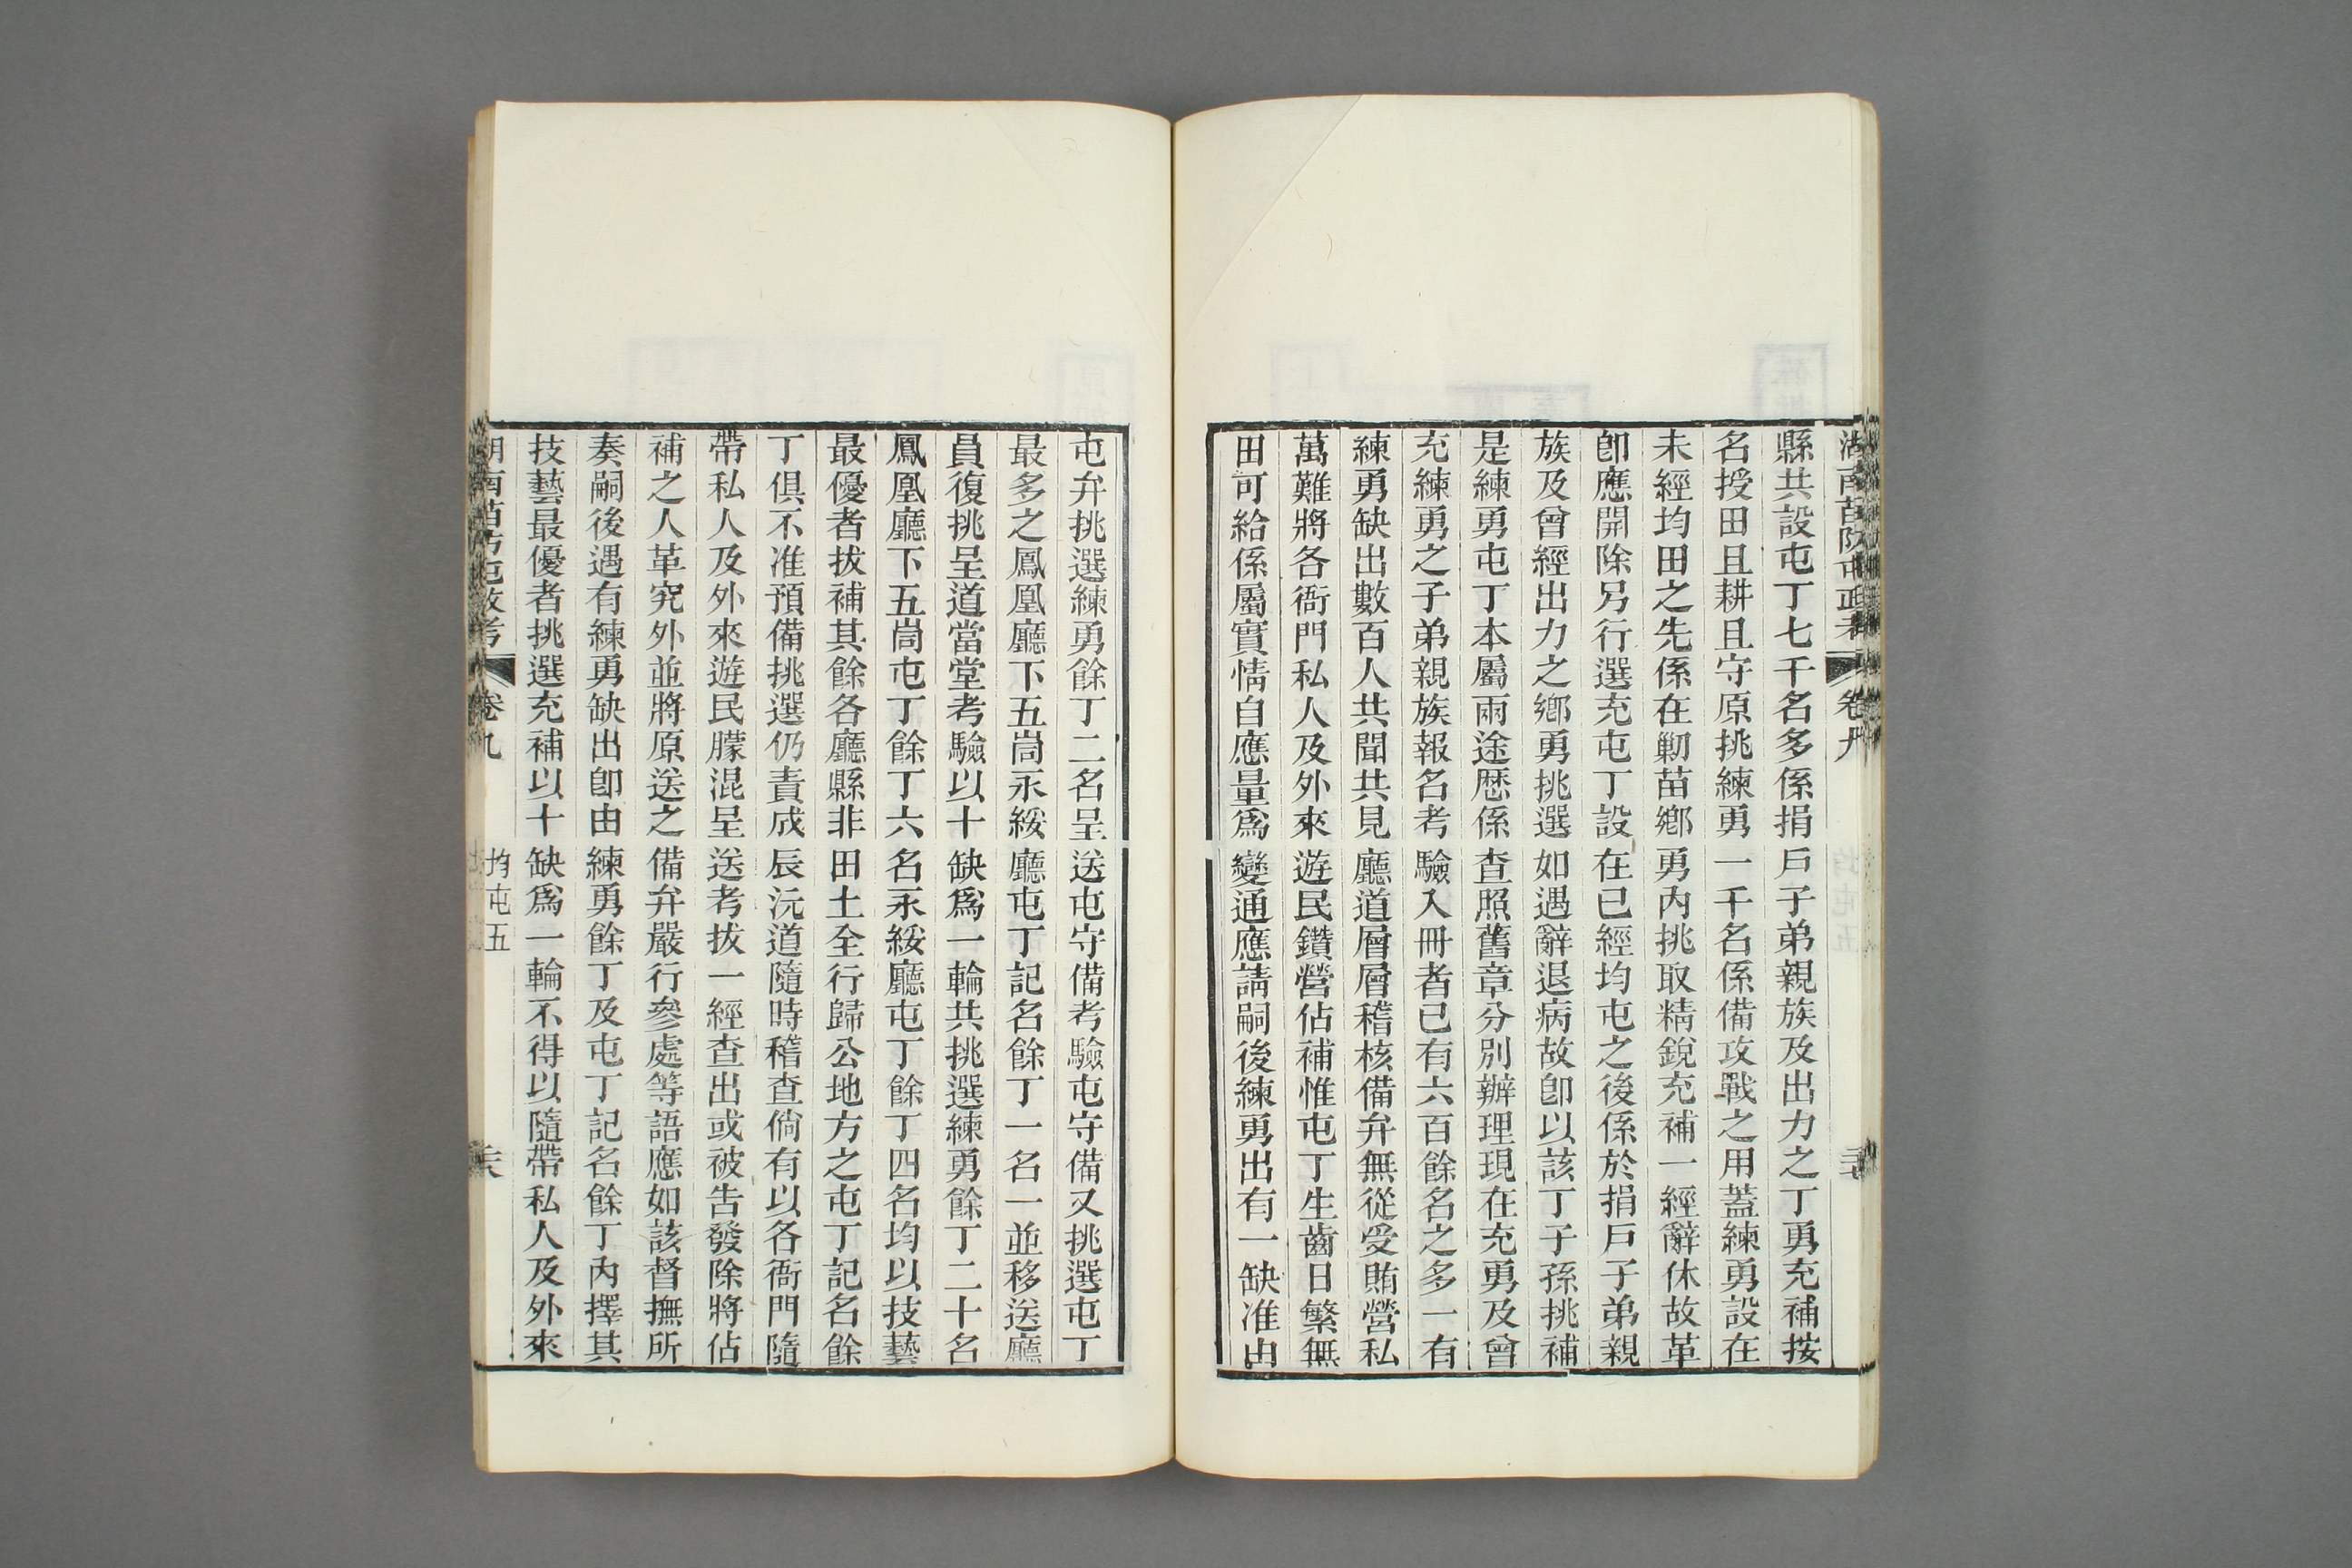 湖南苗防屯政考 卷九
縣共設屯丁七千名多係捐戶子弟親族及出力之丁勇充補按
名授田且耕且守原挑練勇一千名係備攻戰之用蓋練勇設在
未經均田之先係在勦苗鄉勇內挑取精銳充補一經辭休故革
卽應開除另行選充屯丁設在已經均屯之後係於捐戶子弟親
族及曾經出力之鄉勇挑選如遇辭退病故卽以該丁子孫挑補
是練勇屯丁本屬兩途歷係查照舊章分別辦理現在充勇及曾
充練勇之子弟親族報名考驗入冊者已有六百餘名之多一有
練勇缺出數百人共聞共見廳道層層稽核備弁無從受賄營私
萬難將各衙門私人及外來遊民鑽營佔補惟屯丁生齒日繁無
田可給係屬實情自應量爲變通應請嗣後練勇出有一缺准由
屯弁挑選練勇餘丁二名呈送屯守備考驗屯守備又挑選屯丁
最多之鳳凰廳下五峝永綏廳屯丁記名餘丁一名一並移送廳
員復挑呈道當堂考驗以十缺爲一輪共挑選練勇餘丁二十名
鳳凰廳下五峝屯丁餘丁六名永綏廳屯丁餘丁四名均以技藝
最優者拔補其餘各廳縣非田土全行歸公地方之屯丁記名餘
丁俱不准預備挑選仍責成辰沅道隨時稽查倘有以各衙門隨
帶私人及外來遊民朦混呈送考拔一經查出或被告發除將佔
補之人革究外並將原送之備弁嚴行參處等語應如該督撫所
奏嗣後遇有練勇缺出卽由練勇餘丁及屯丁記名餘丁內擇其
技藝最優者挑選充補以十缺爲一輪不得以隨帶私人及外來
湖南苗防屯政考 卷九 均屯五